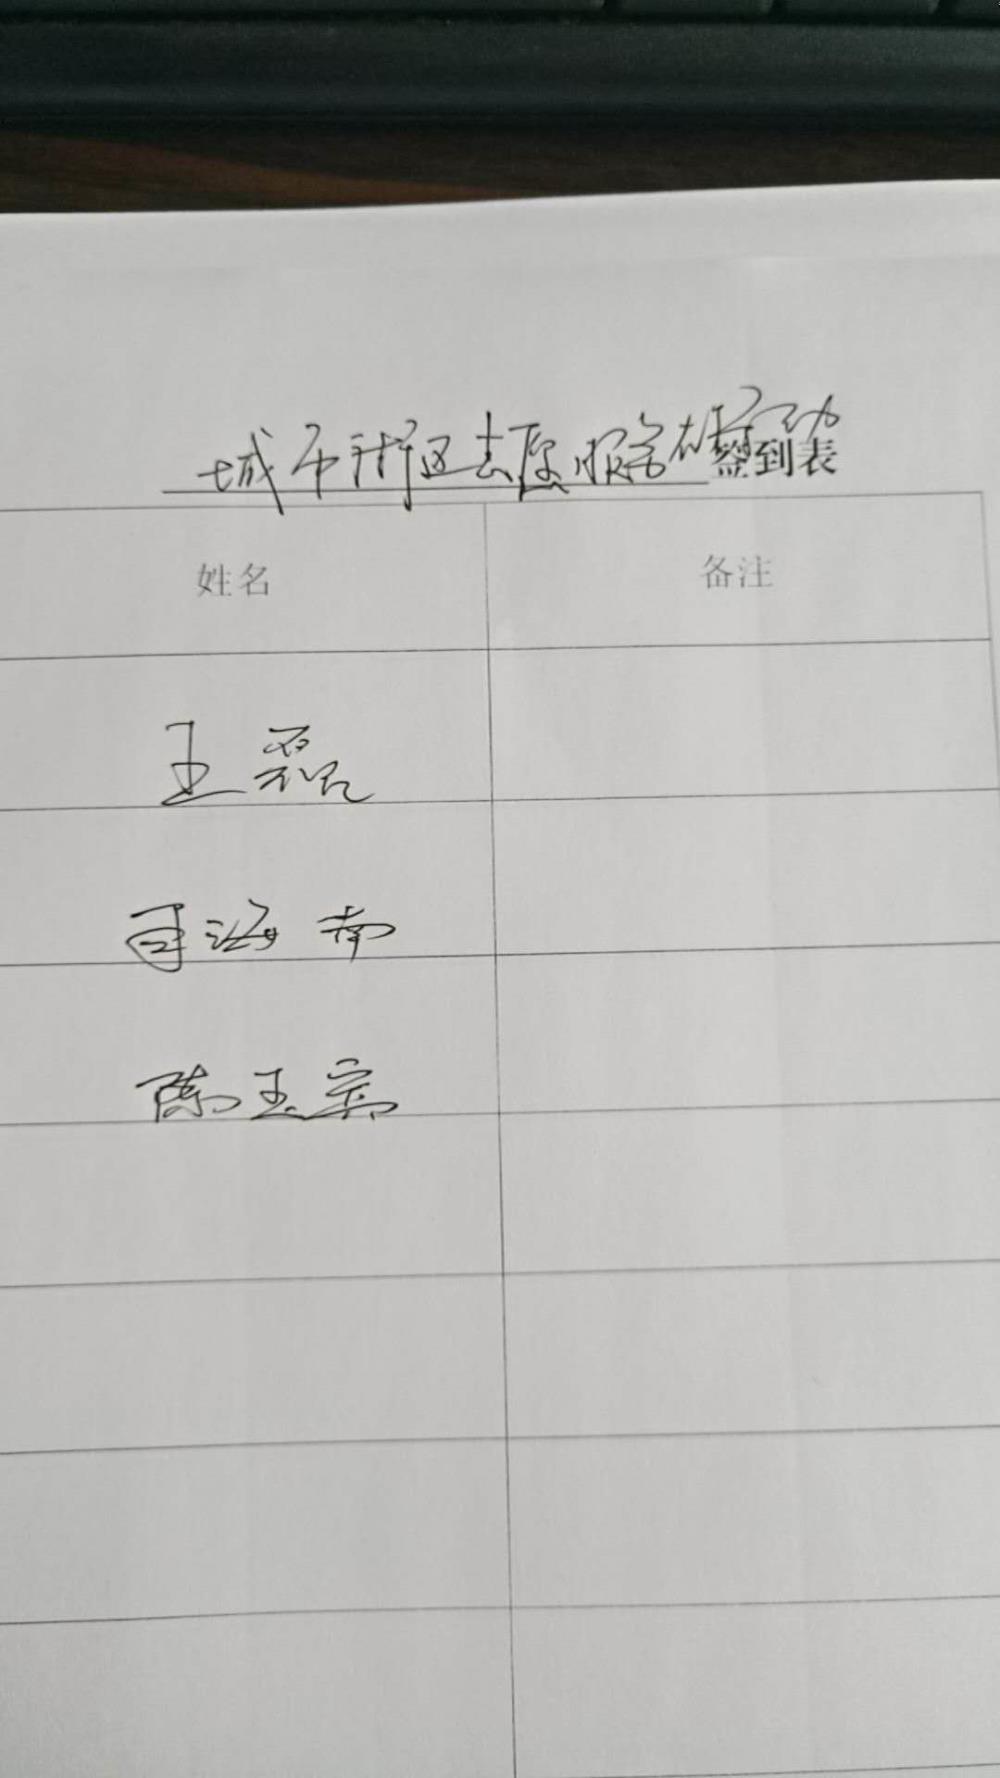 城市街区志愿服务在行动签到表
姓名 备注
王磊
海南
陈玉宗